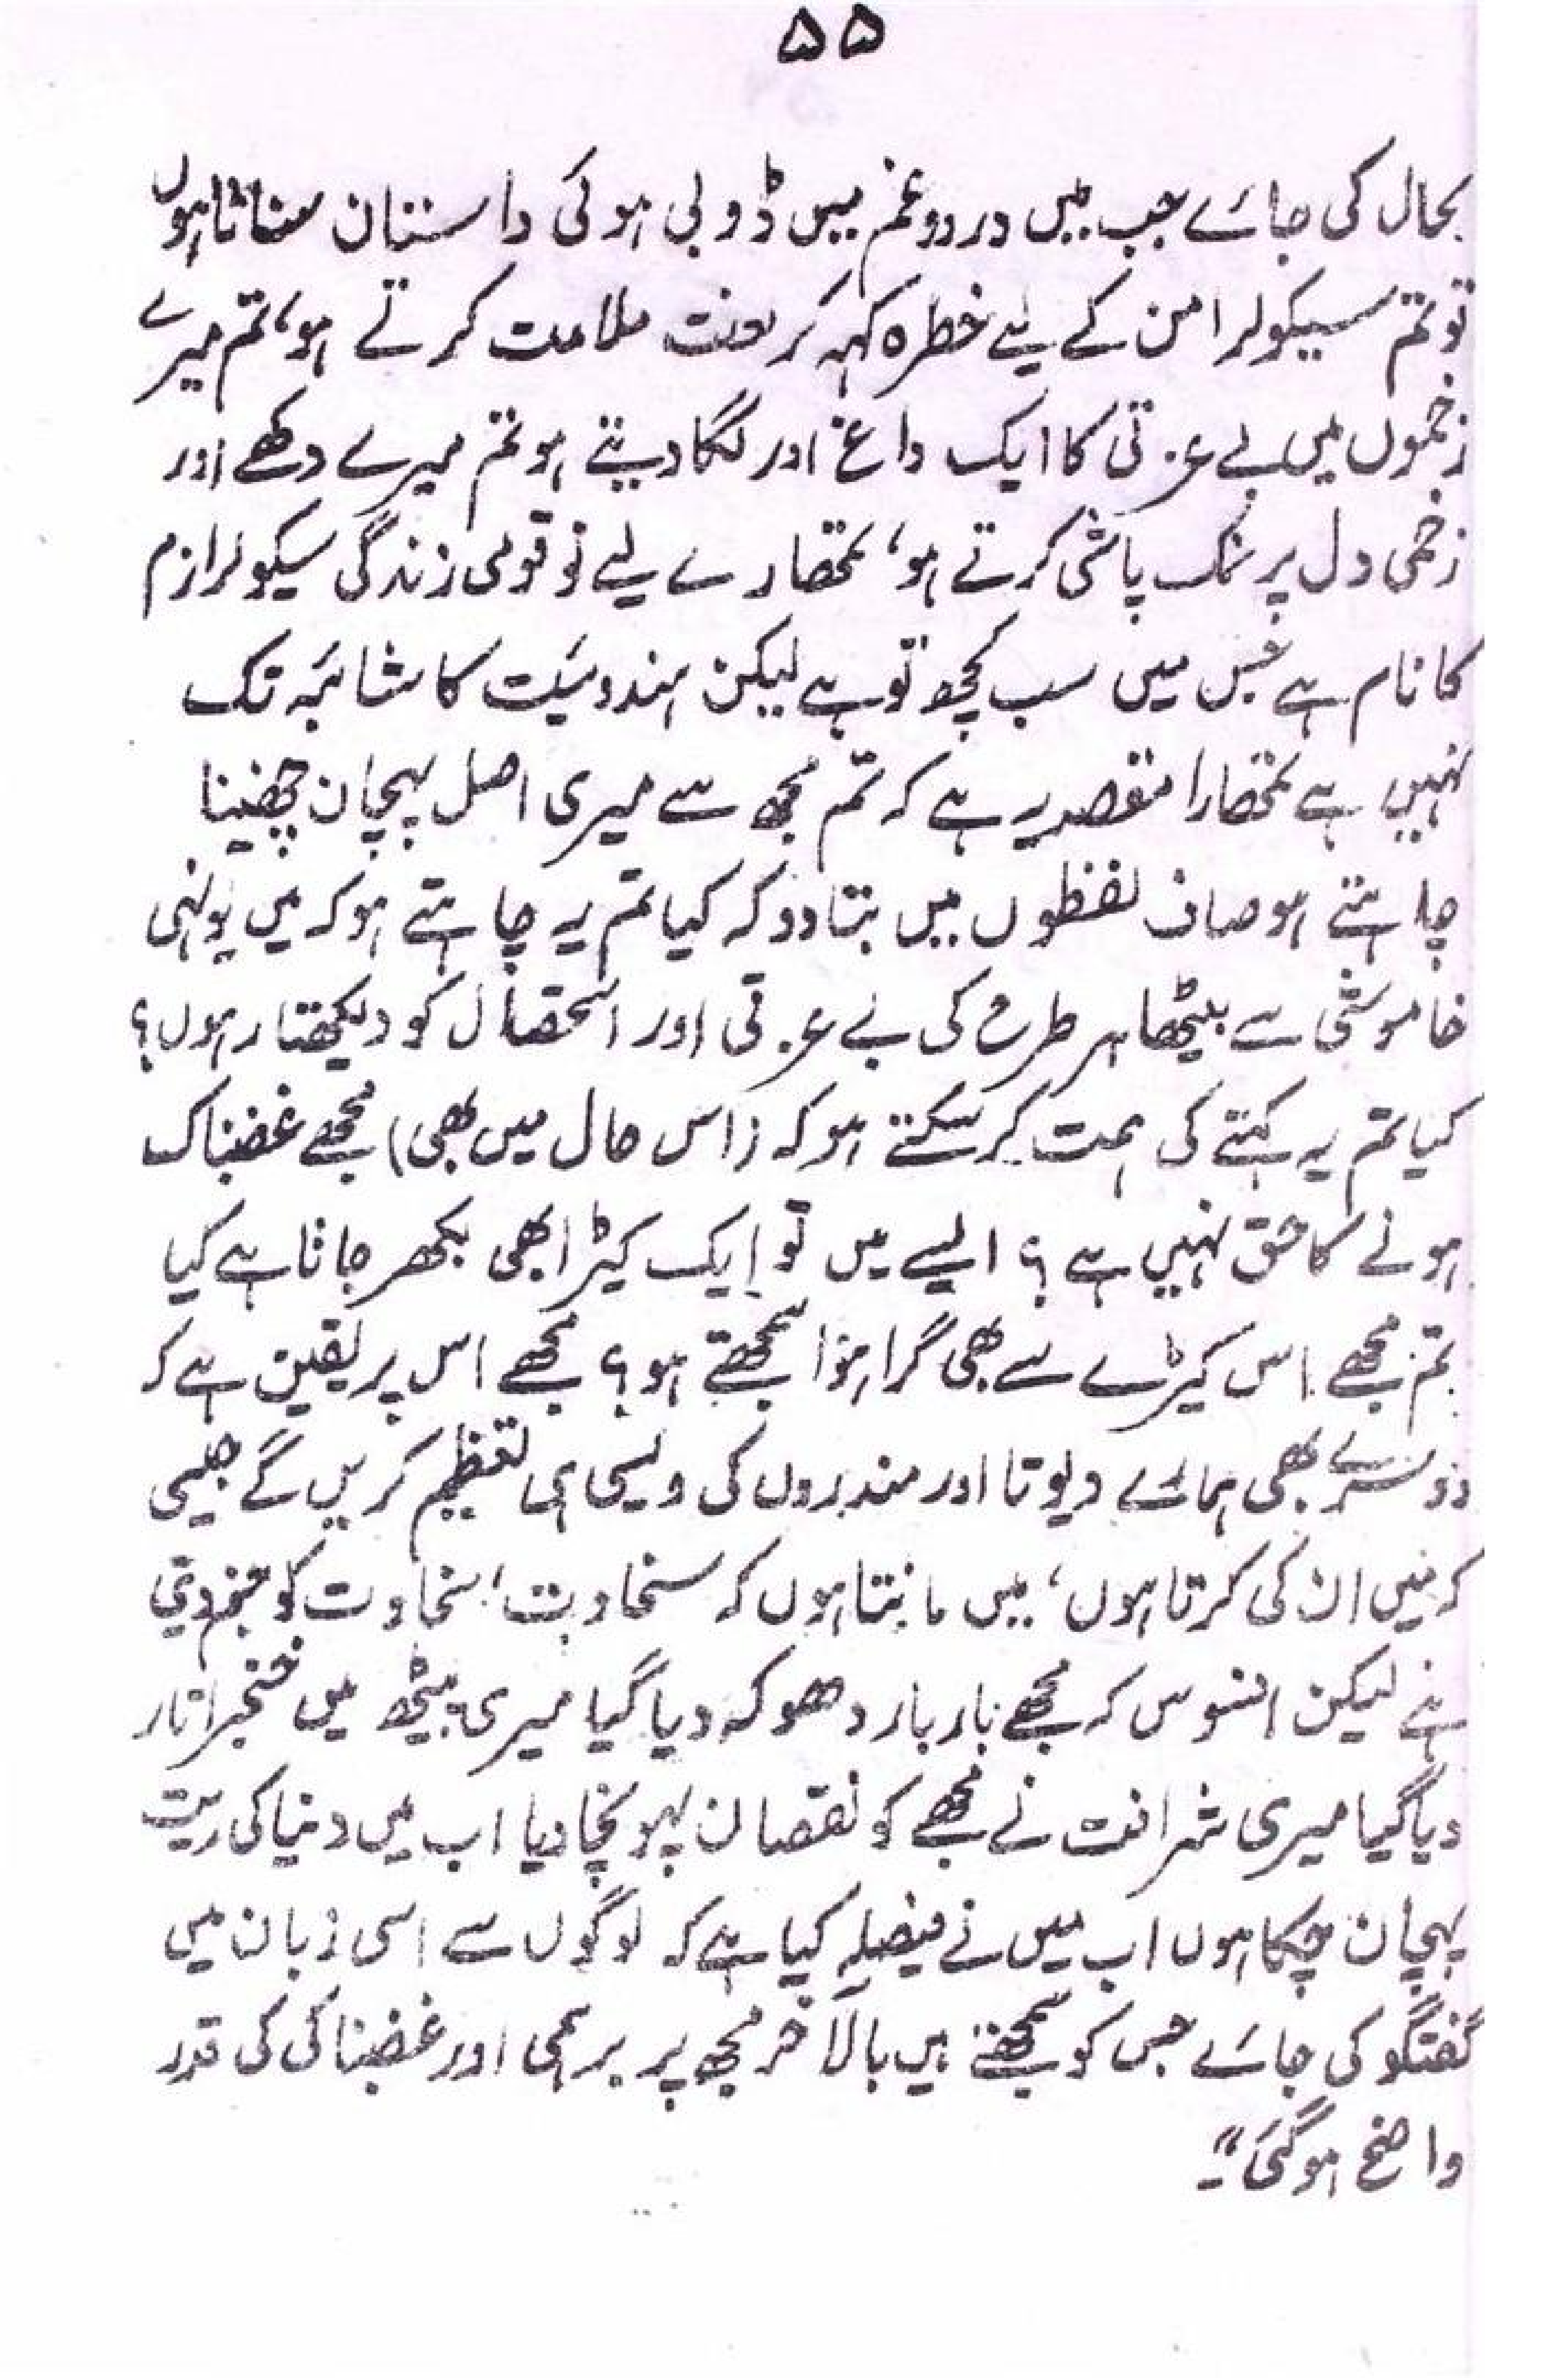 ۵۵
بحال کی جائے جب میں درد و غم میں ڈوبی ہوئی داستان سناتا ہوں
تو تم سیکولر امن کے لیے خطرہ کہہ کر لعنت ملامت کرتے ہو، تم میرے
زخموں میں بے عزتی کا ایک داغ اور لگا دیتے ہو تم میرے دکھے اور
زخمی دل پر نمک پاشی کرتے ہو، تمھارے لیے تو قومی زندگی سیکولرازم
کا نام ہے جس میں سب کچھ تو ہے لیکن ہندوئیت کا شائبہ تک
نہیں ہے تمھارا مقصد یہ ہے کہ تم مجھ سے میری اصل پہچان چھیننا
چاہتے ہو صاف لفظوں میں بتا دو کہ کیا تم یہ چاہتے ہو کہ میں یونہی
خاموشی سے بیٹھا ہر طرح کی بے عزتی اور استحصال کو دیکھتا رہوں؟
کیا تم یہ کہنے کی ہمت کر سکتے ہو کہ (اس حال میں بھی) مجھے غضبناک
ہونے کا حق نہیں ہے؟ ایسے میں تو ایک کیڑا بھی بکھر جاتا ہے کیا
تم مجھے اس کیڑے سے بھی گرا ہوا سمجھتے ہو؟ مجھے اس پر یقین ہے کہ
دوسرے بھی ہمارے دیوتا اور مندروں کی ویسی ہی تعظیم کریں گے جیسی
کہ میں ان کی کرتا ہوں، میں مانتا ہوں کہ سخاوت، سخاوت کو جنم دیتی
ہے لیکن افسوس کہ مجھے بار بار دھوکہ دیا گیا میری پیٹھ میں خنجر اتار
دیا گیا میری شرافت نے مجھے کو نقصان پہونچا دیا اب میں دنیا کی ریت
پہچان چکا ہوں اب میں نے فیصلہ کیا ہے کہ لوگوں سے اسی زبان میں
گفتگو کی جائے جس کو سمجھتے ہیں بالآخر مجھ پر برہمی اور غضبناکی کی قدر
واضح ہو گئی"۔